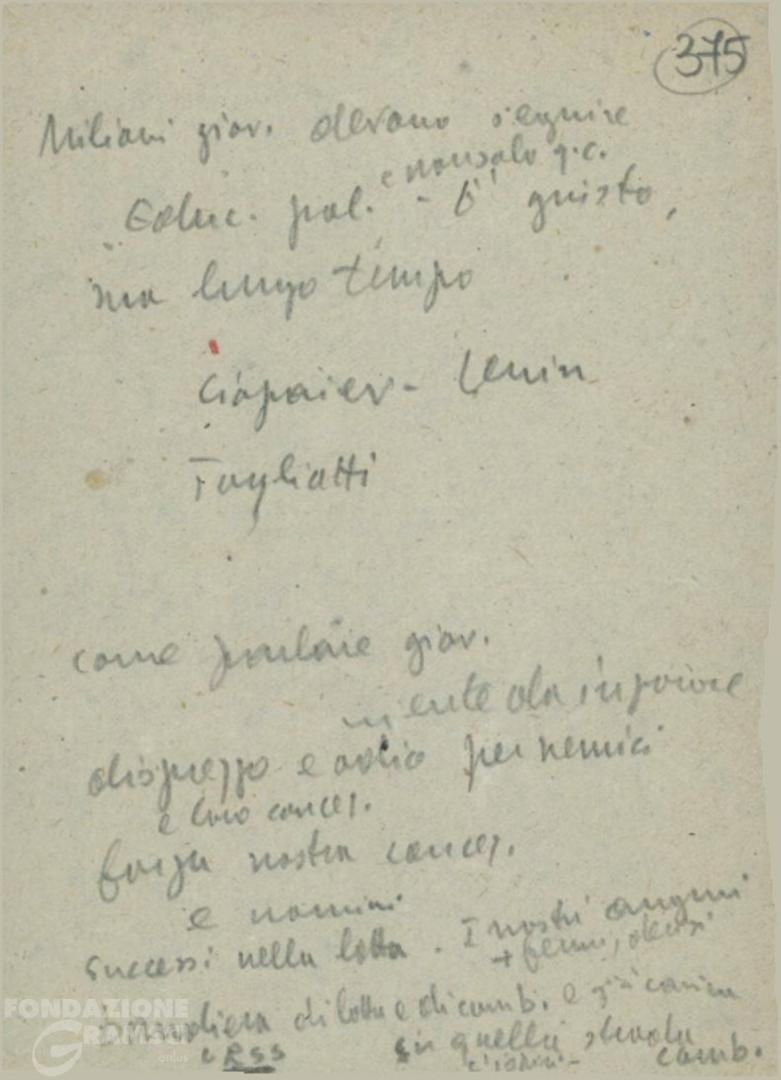 375
Miliani giov. devono seguire
e non solo q.c.
Educ. pol. - E' giusto,
ma lungo tempo
Ciapaiev - Lenin
Togliatti
come parlare giov.
niente da imparare
disprezzo e odio per nemici
e loro concez.
forza nostra concez.
e uomini
successi nella lotta. I nostri
+ fermi, decisi
bandiera di lotta e di comb. e già
URSS in quella strada
comb.
FONDAZIONE
GRAMSCI
onlus